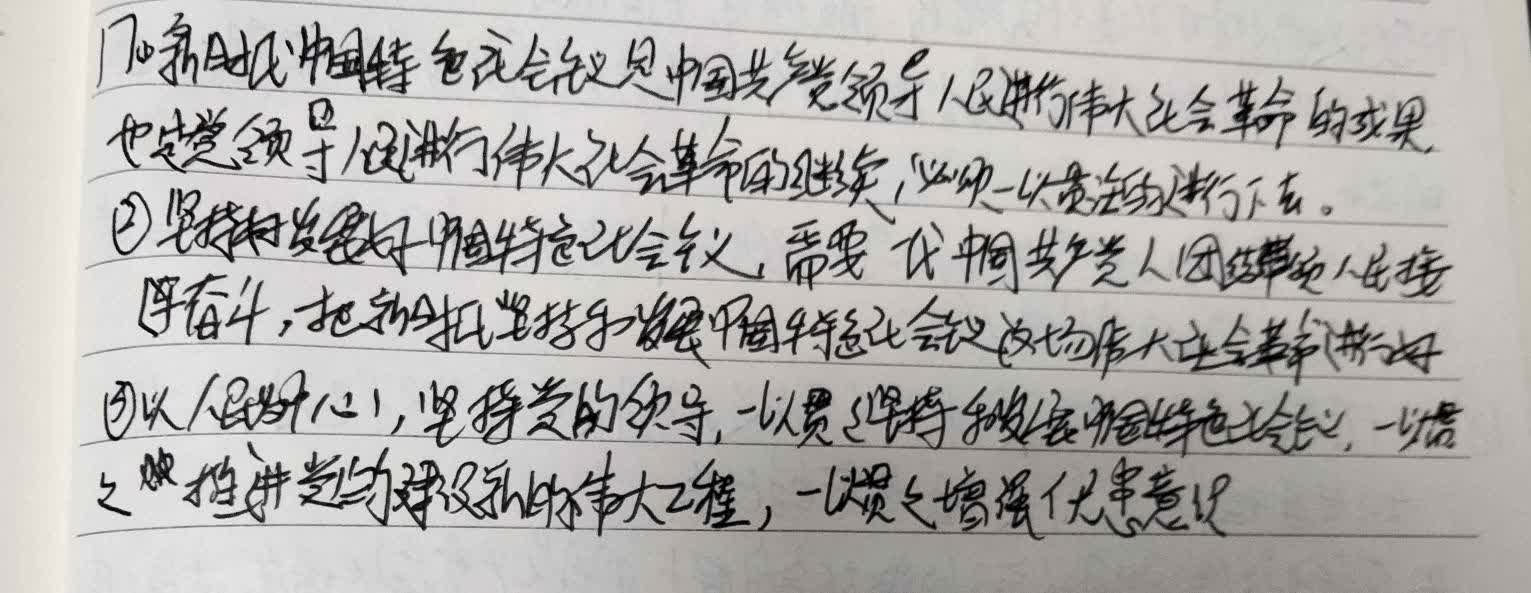 17①新时代中国特色社会主义是中国共产党领导人民进行伟大社会革命的成果,
也是党领导人民进行伟大社会革命的继续,必须一以贯之的进行下去。
②坚持和发展好中国特色社会主义,需要一代中国共产党人团结带领人民接
续奋斗,把新时代坚持和发展中国特色社会主义这场伟大社会革命进行好
③以人民为中心,坚持党的领导,一以贯之坚持和发展中国特色社会主义,一以贯
之推进党的建设新的伟大工程,一以贯之增强忧患意识